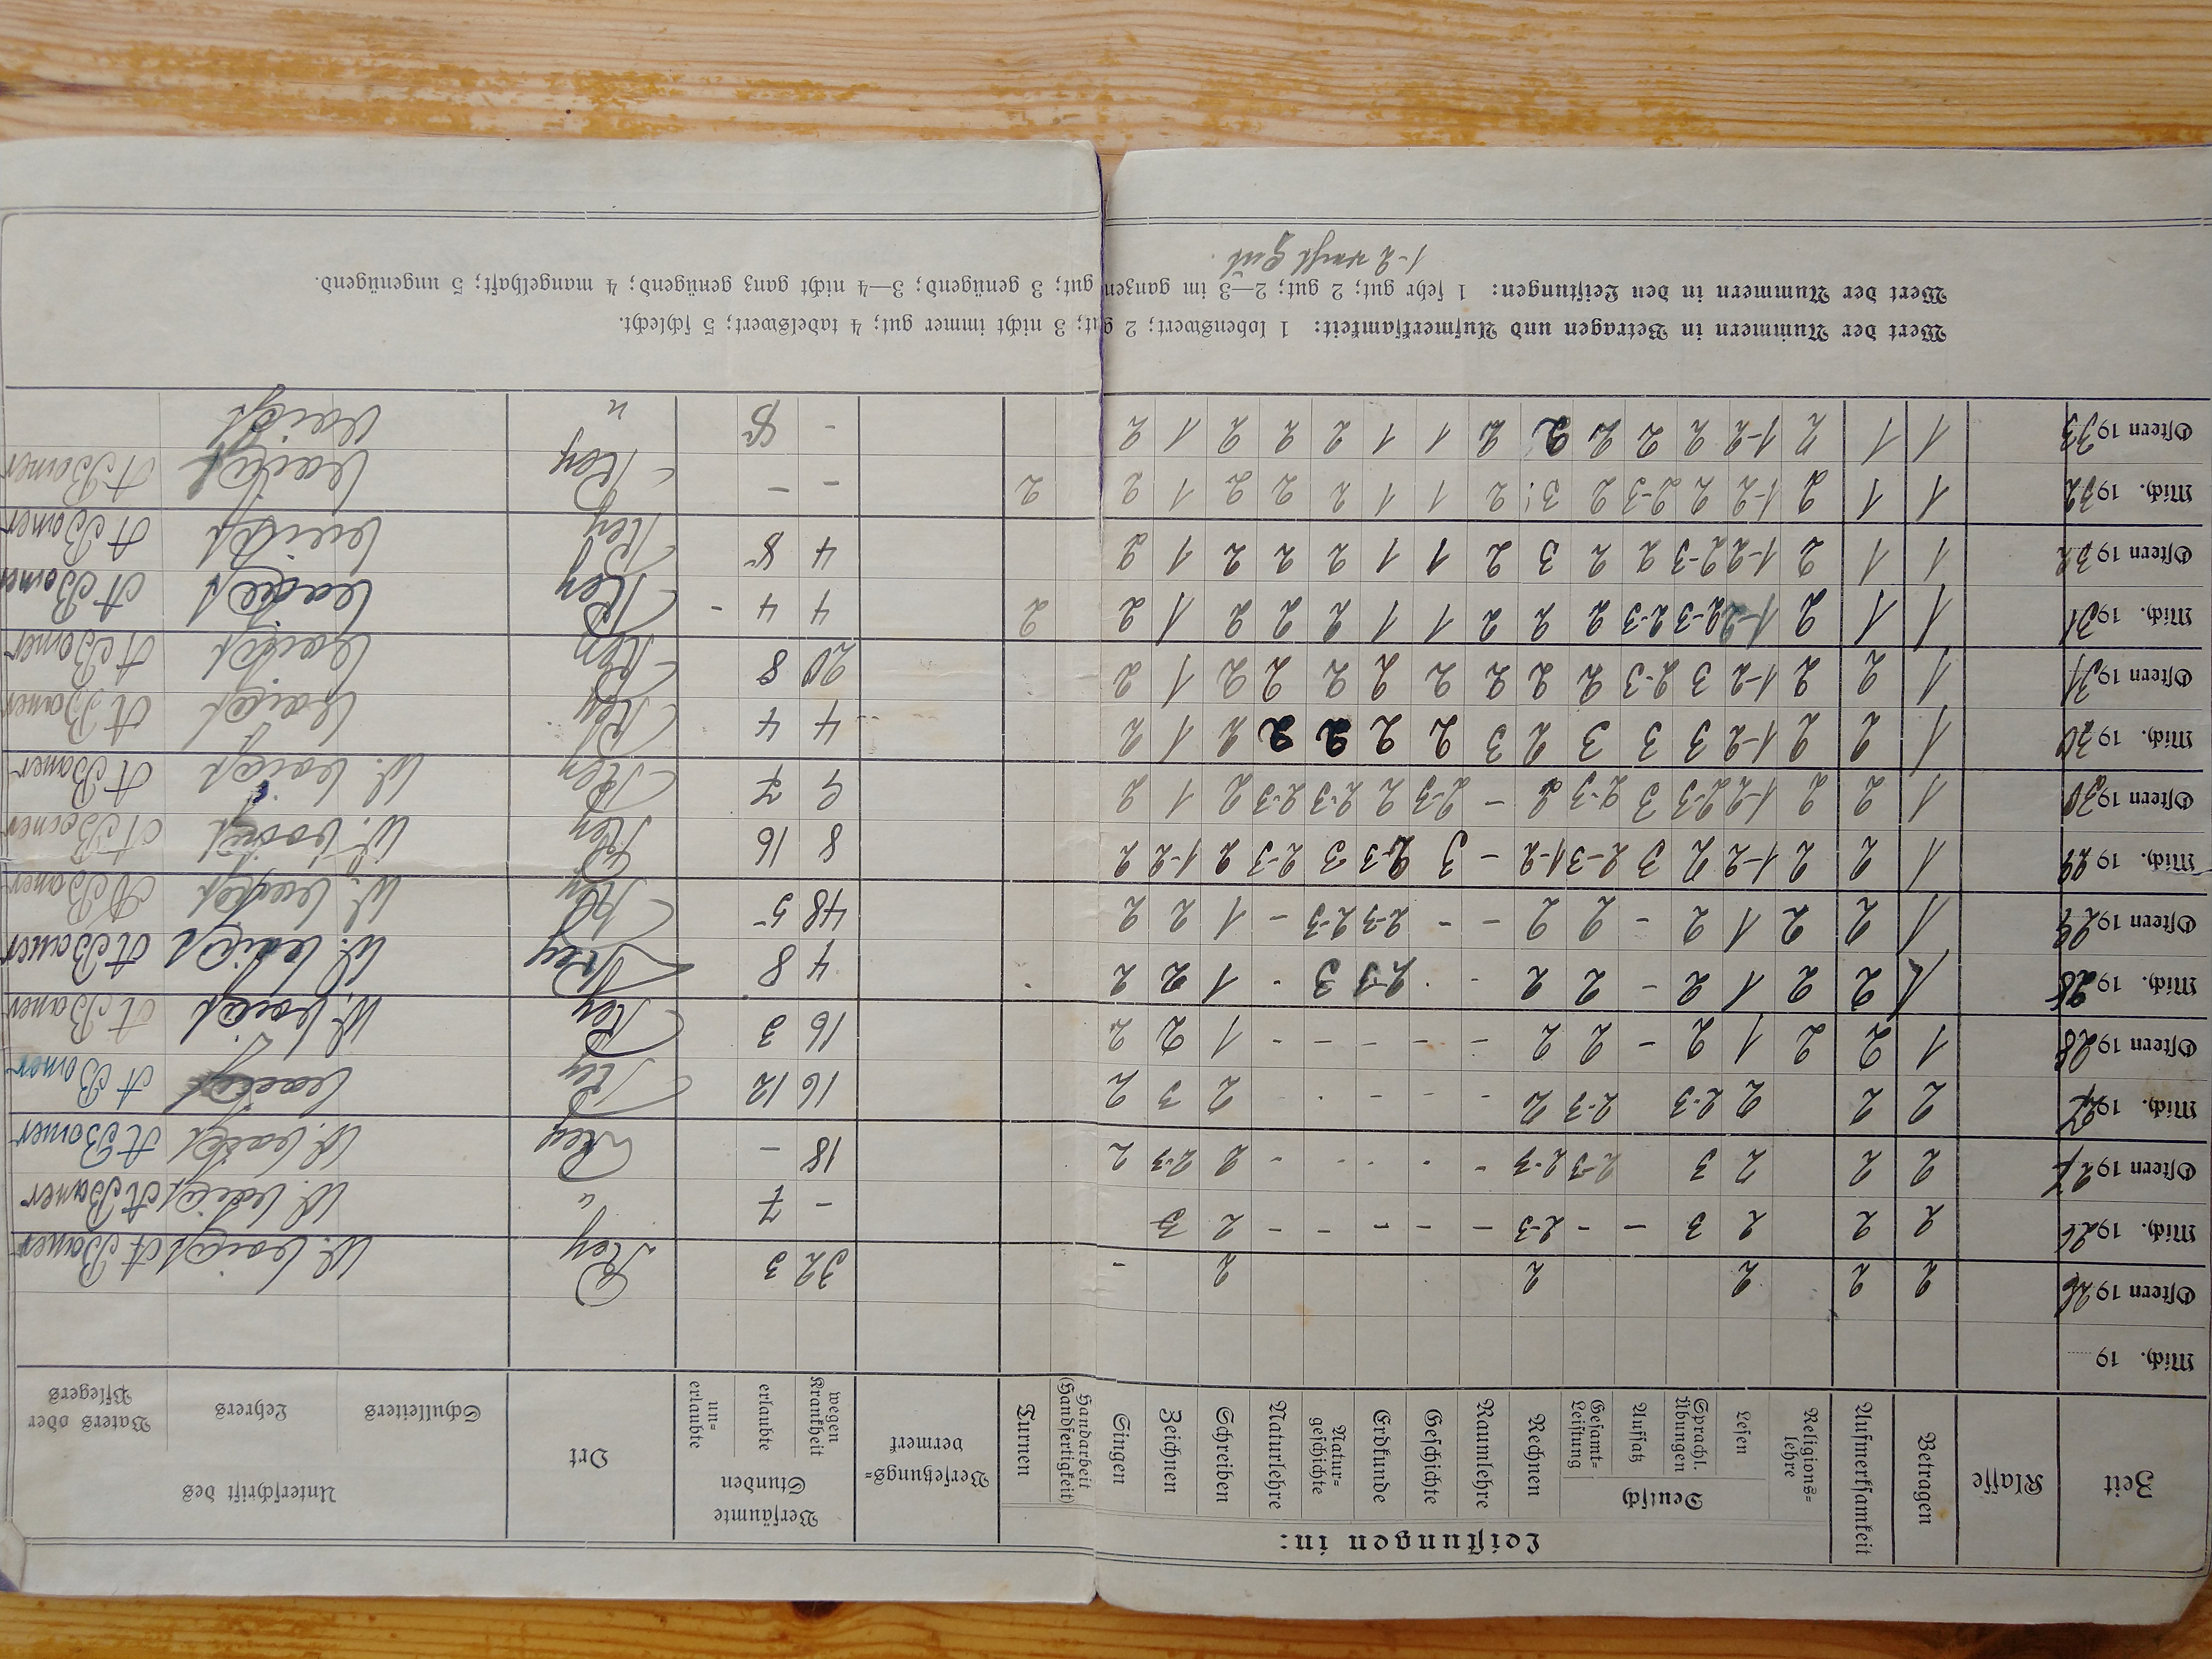 Leistungen in:
Zeit Klasse Betragen Aufmerksamkeit Religions-lehre Deutsch Lesen Sprachl. Übungen Aufsatz Gesamt-Leistung Rechnen Raumlehre Geschichte Erdkunde Natur-geschichte Naturlehre Schreiben Zeichnen Singen Handarbeit (Handfertigkeit) Turnen Versetzungs-vermerk Versäumte Stunden wegen Krankheit erlaubte un-erlaubte Ort Unterschrift des Schulleiters Lehrers Vaters oder Pflegers
Mich. 19
Ostern 1926 2 2 2 2 2 - 32 3 Rey A Bauer
Mich. 1926 2 2 2 3 - - 2-3 - - - - - 2 3 - 7 " A Bauer
Ostern 1927 2 2 2 3 2-3 2-3 - - - - - 2 2-3 2 18 - Rey A Bauer
Mich. 1927 2 2 2 2-3 2-3 2 - - - - - 2 3 2 16 12 Rey A Bauer
Ostern 1928 1 2 2 1 2 - 2 2 - - - - - 1 2 2 16 3 Rey A Bauer
Mich. 1928 1 2 2 1 2 - 2 2 - - 2-3 3 - 1 2 2 4 8 Rey A Bauer
Ostern 1929 1 2 2 1 2 - 2 2 - - 2-3 2-3 - 1 2 2 48 5 Rey A Bauer
Mich. 1929 1 2 2 1-2 2 3 2-3 1-2 - 3 2-3 3 2-3 2 1-2 2 8 16 Rey A Bauer
Ostern 1930 1 2 2 1-2 2-3 3 2-3 2 - 2-3 2 2-3 2-3 2 1 2 9 7 Rey A Bauer
Mich. 1930 1 2 2 1-2 3 3 3 2 3 2 2 2 2 2 1 2 4 4 Rey A Bauer
Ostern 1931 1 2 2 1-2 3 2-3 2 2 2 2 2 2 2 2 1 2 20 8 Rey A Bauer
Mich. 1931 1 1 2 1-2 2-3 2-3 2 2 2 1 1 2 2 2 1 2 2 4 4 - Rey A Bauer
Ostern 1932 1 1 2 1-2 2-3 2 2 3 2 1 1 2 2 2 1 2 4 8 Rey A Bauer
Mich. 1932 1 1 2 1-2 2 2-3 2 3! 2 1 1 2 2 2 1 2 2 - - Rey A Bauer
Ostern 1933 1 1 2 1-2 2 2 2 2 2 1 1 2 2 2 1 2 - 8 "
Wert der Nummern in Betragen und Aufmerksamkeit: 1 lobenswert; 2 gut; 3 nicht immer gut; 4 tadelswert; 5 schlecht.
Wert der Nummern in den Leistungen: 1 sehr gut; 2 gut; 2—3 im ganzen gut; 3 genügend; 3—4 nicht ganz genügend; 4 mangelhaft; 5 ungenügend.
1-2 recht gut.